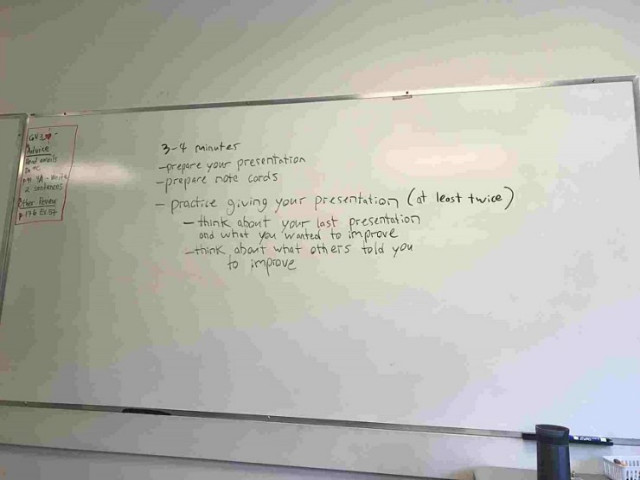 3-4 minutes
-prepare your presentation
-prepare note cards
- practice giving your presentation (at least twice)
- think about your last presentation
and what you wanted to improve
-think about what others told you
to improve
2 sentences